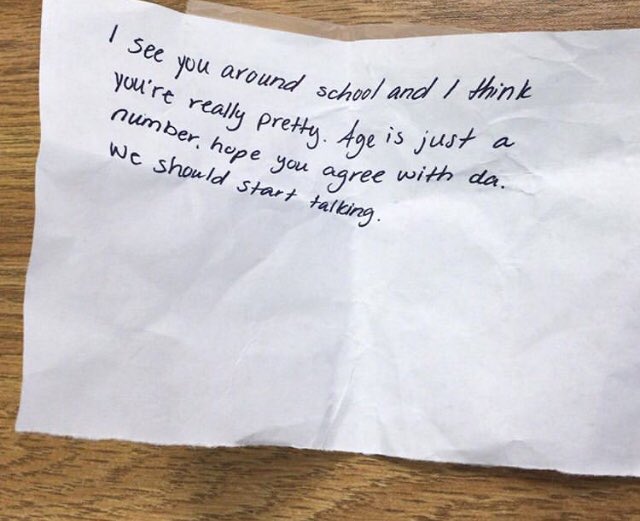 I see you around school and I think
you're really pretty. Age is just a
number. hope you agree with da.
We should start talking.